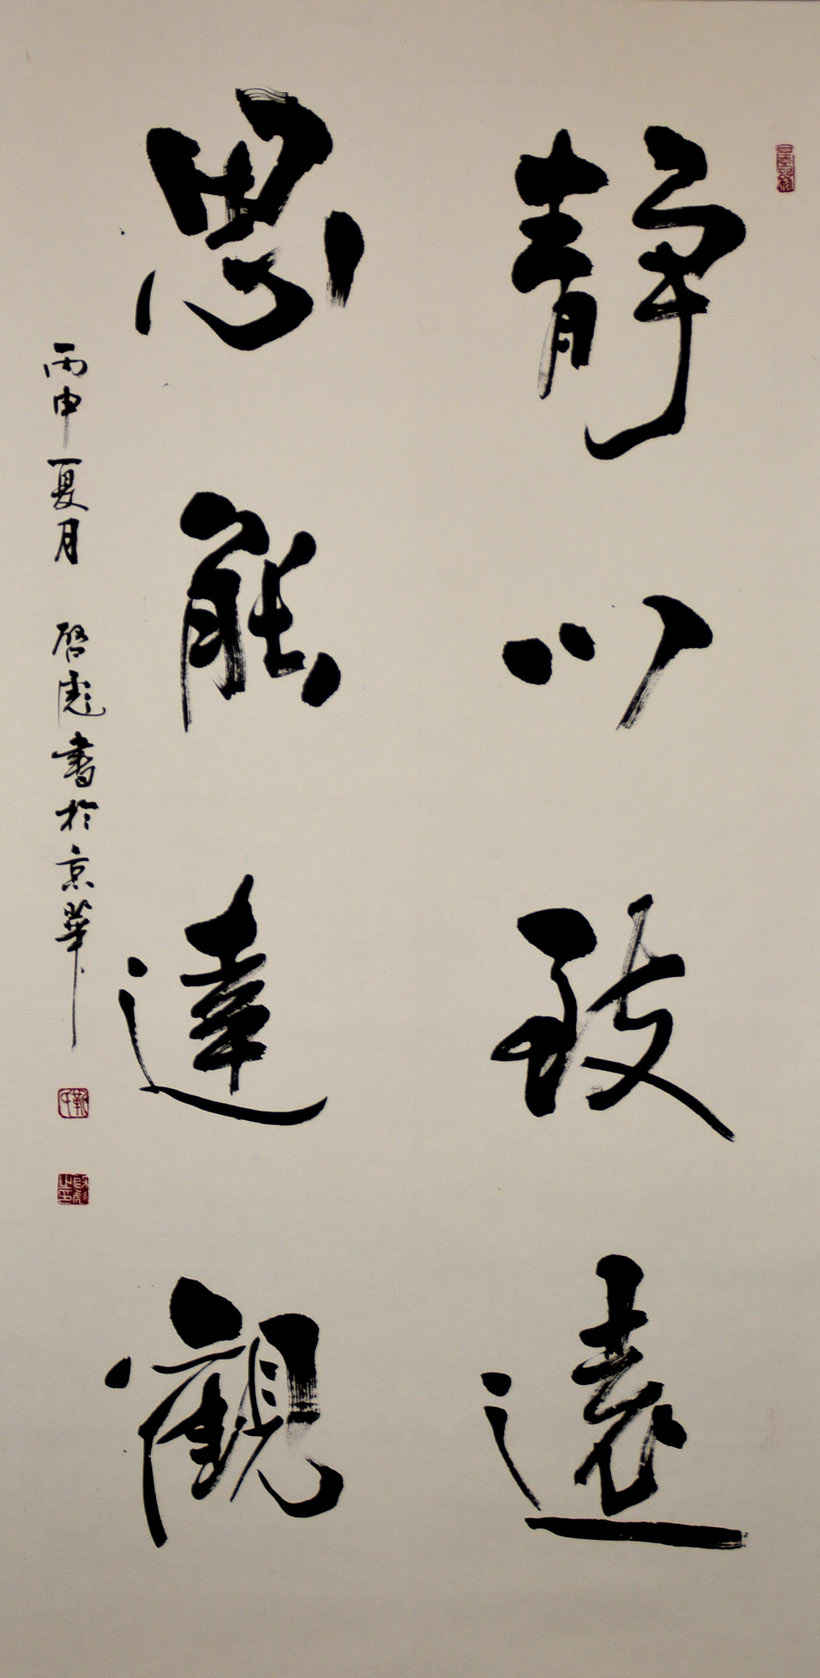 靜以致遠
思能達觀
丙申夏月 啓彪書於京華